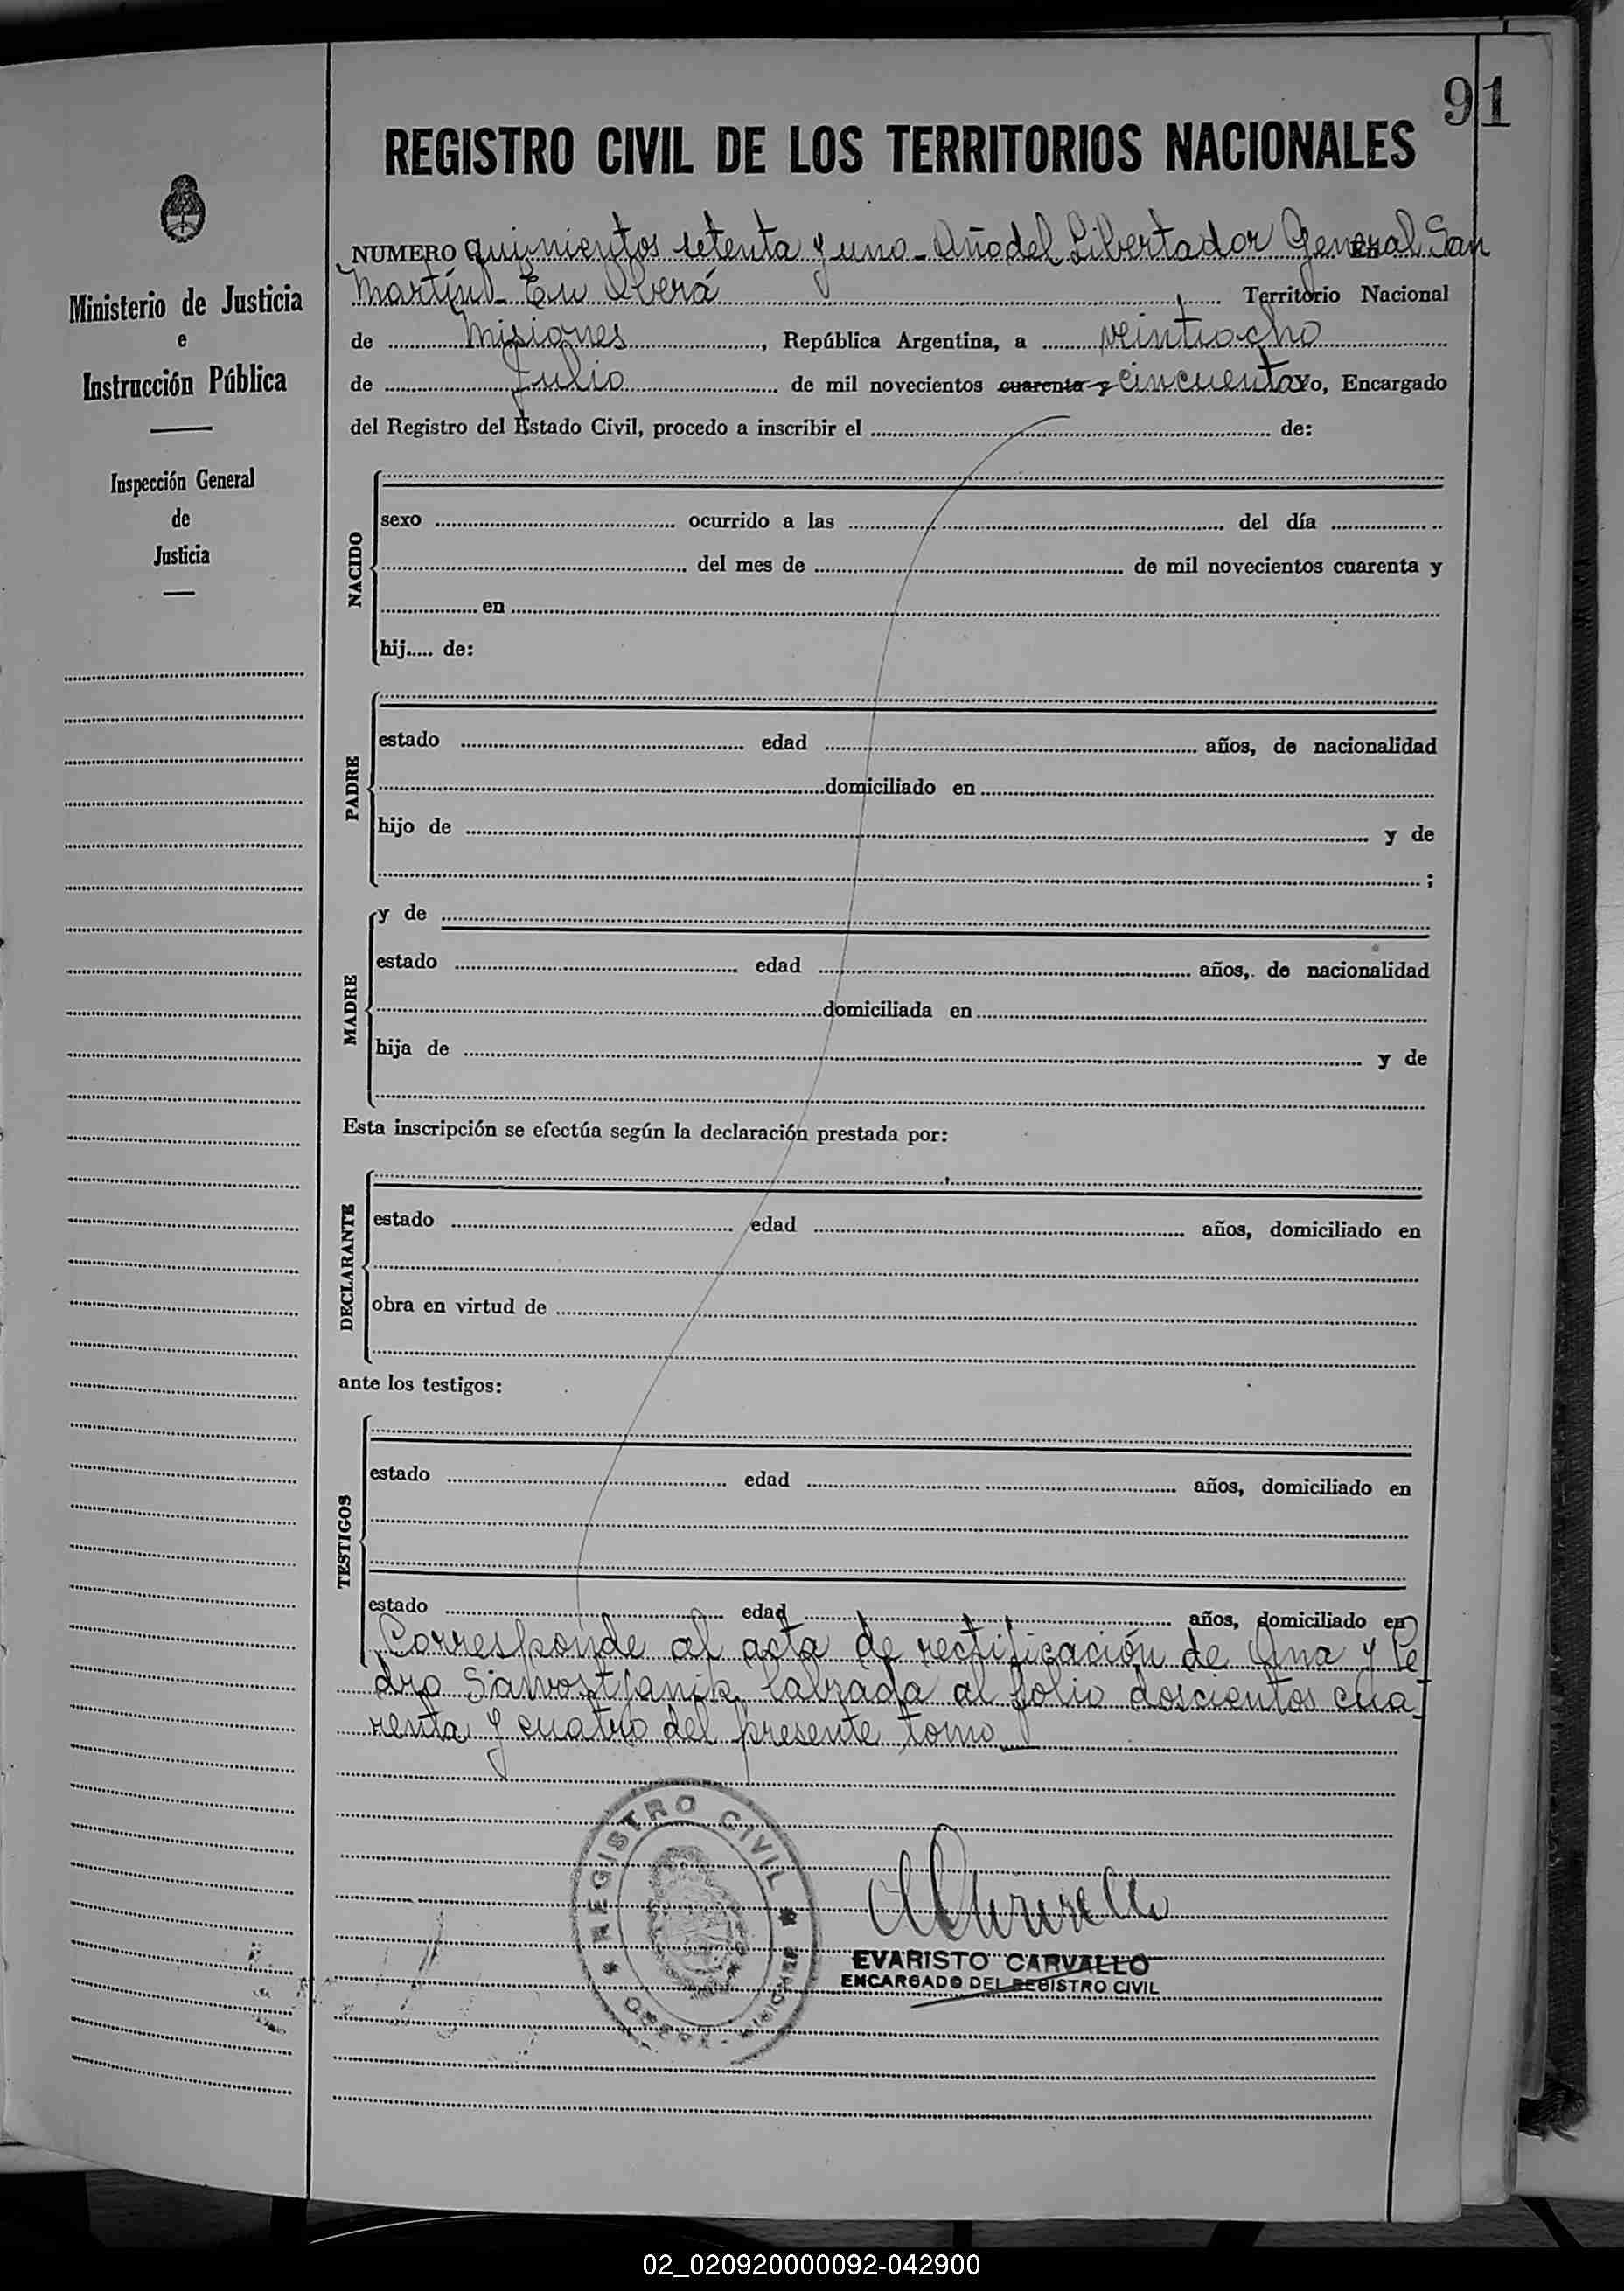 91
REGISTRO CIVIL DE LOS TERRITORIOS NACIONALES
Ministerio de Justicia
e
Instrucción Pública
Inspección General
de
Justicia
NUMERO quinientos setenta y uno - Año del Libertador General San
Martín - En Oberá Territorio Nacional
de Misiones, República Argentina, a veintiocho
de Julio de mil novecientos cuarenta y cincuenta Yo, Encargado
del Registro del Estado Civil, procedo a inscribir el de:
NACIDO
sexo ocurrido a las del día
del mes de de mil novecientos cuarenta y
en
hij..... de:
PADRE
estado edad años, de nacionalidad
domiciliado en
hijo de y de
;
MADRE
y de
estado edad años, de nacionalidad
domiciliada en
hija de y de
Esta inscripción se efectúa según la declaración prestada por:
DECLARANTE
estado edad años, domiciliado en
obra en virtud de
ante los testigos:
TESTIGOS
estado edad años, domiciliado en
estado edad años, domiciliado en
Corresponde al acta de rectificación de Ana y Pe
dro Sawostjanik labrada al folio doscientos cua-
renta y cuatro del presente tomo
REGISTRO CIVIL
EVARISTO CARVALLO
ENCARGADO DEL REGISTRO CIVIL
02_020920000092-042900